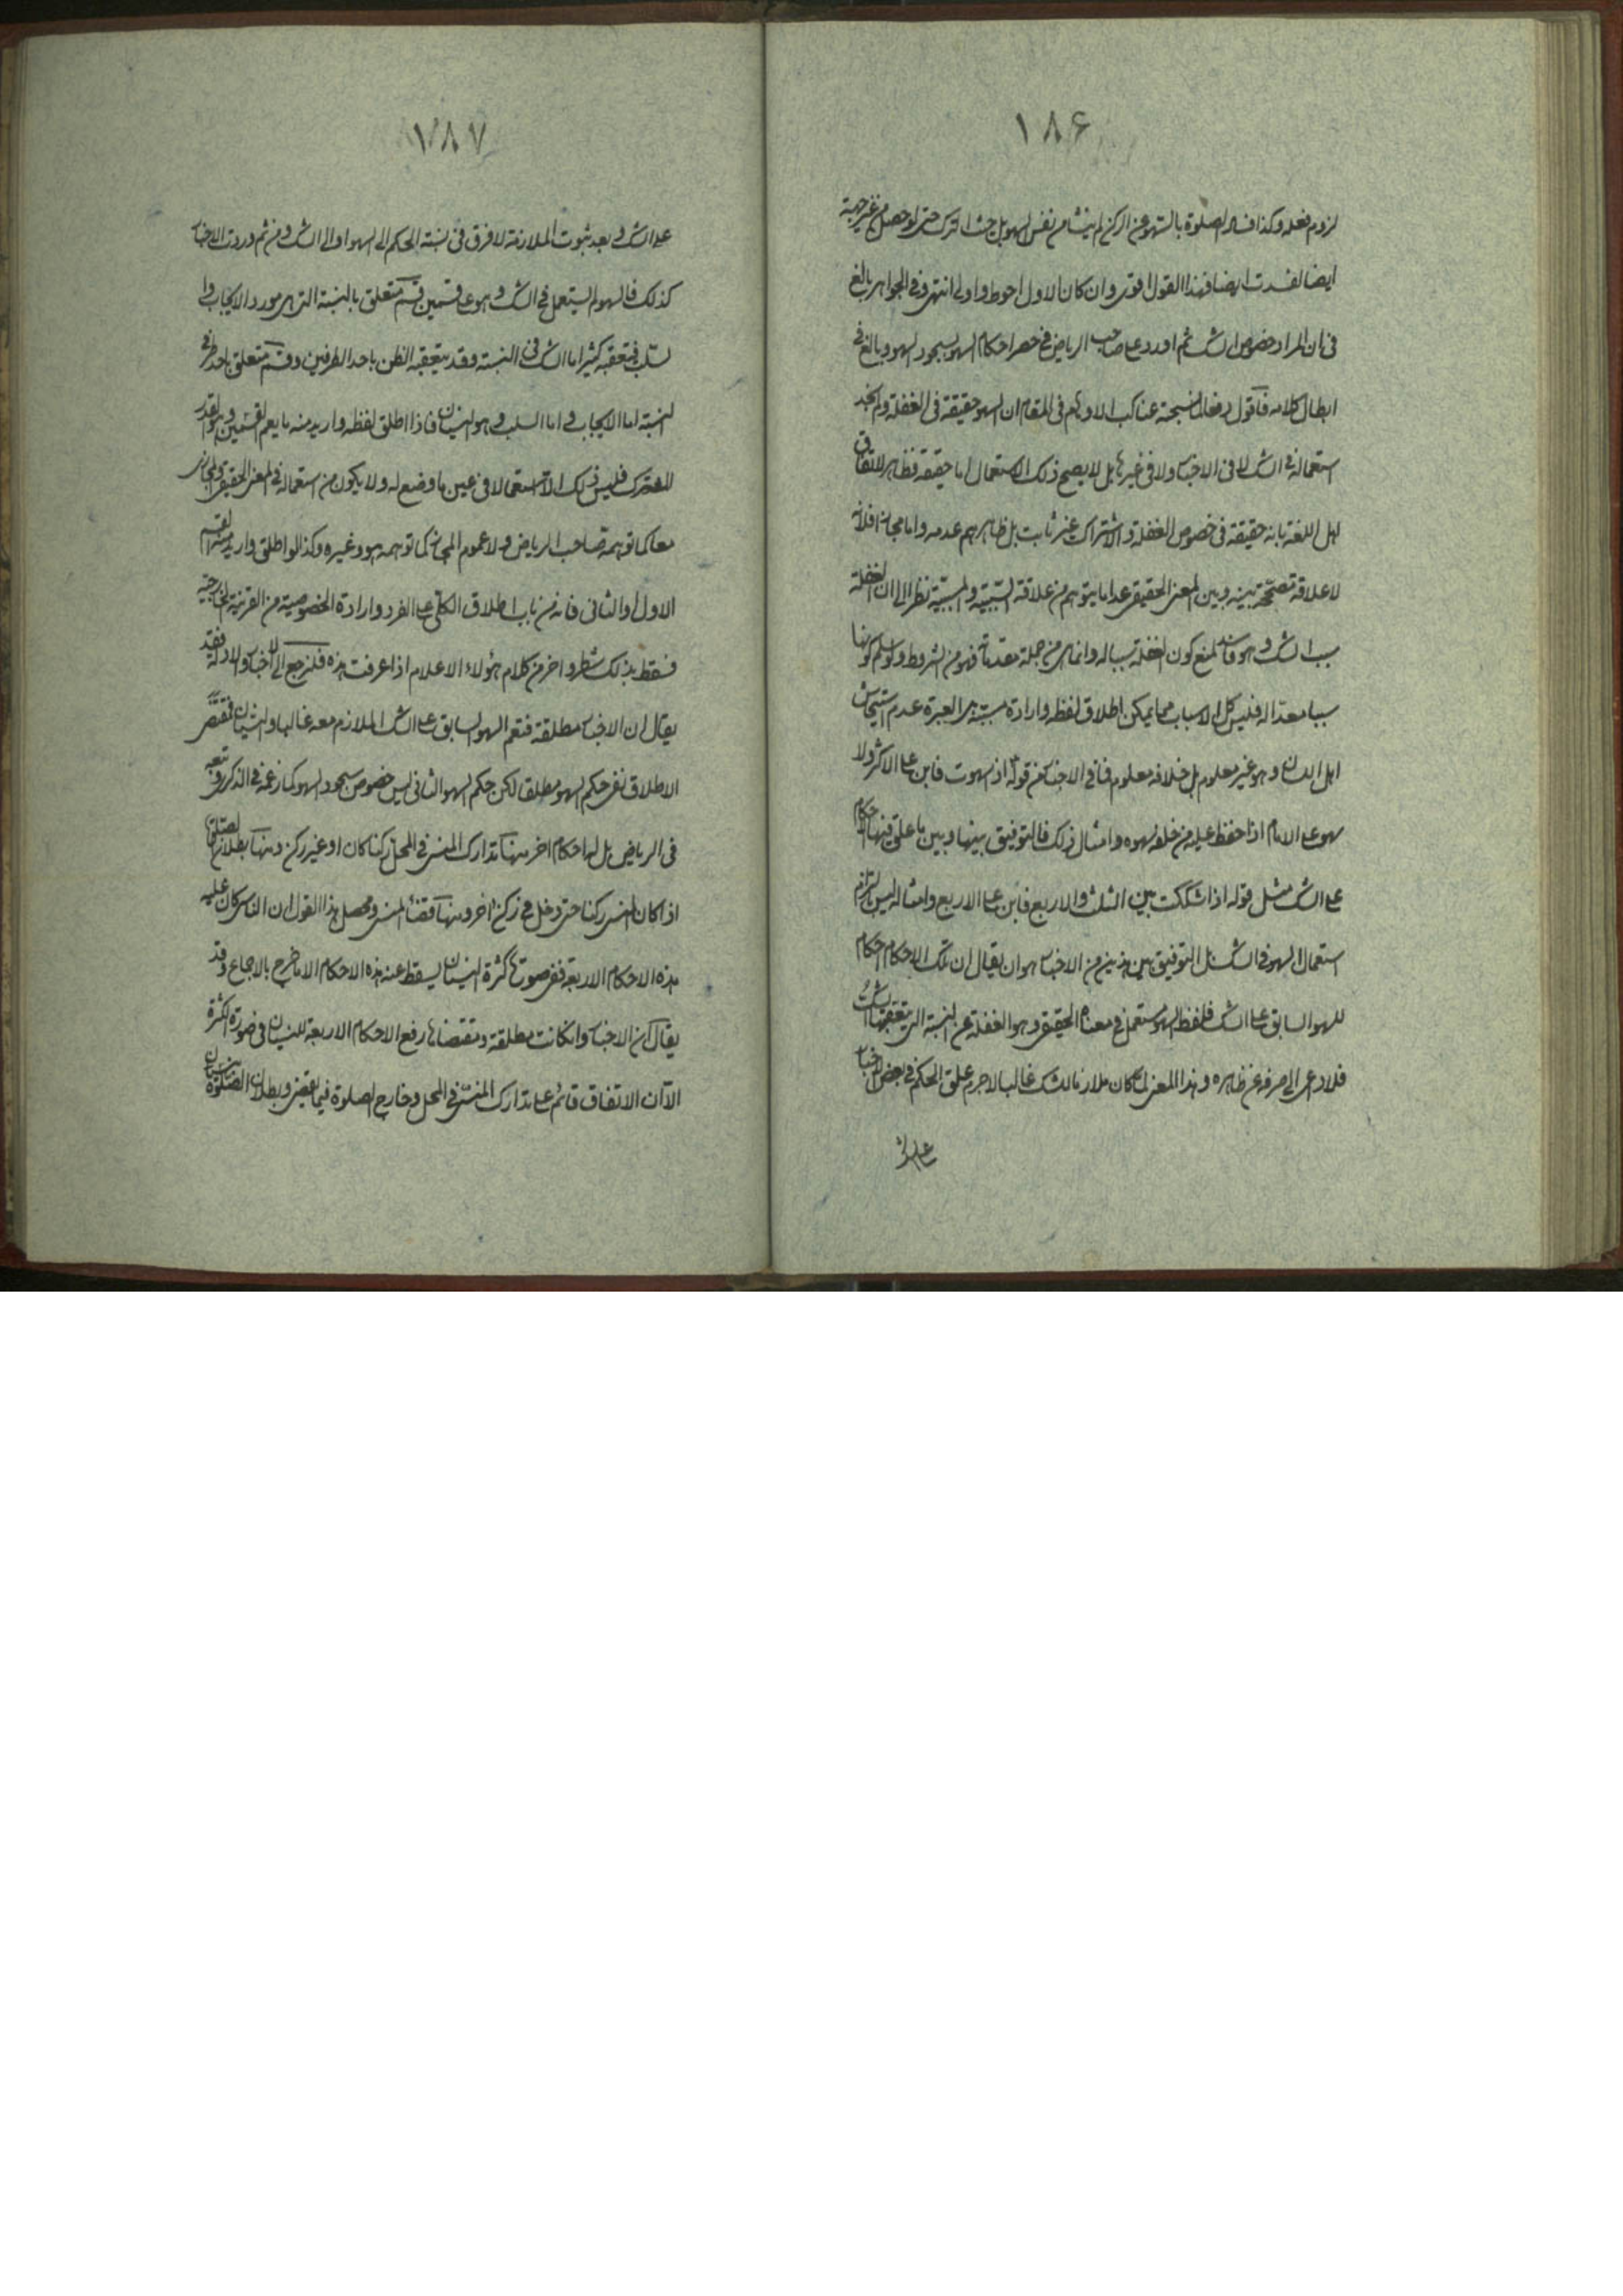 ١٨۶
لزوم فعله وكذا فساد الصلوة بالسهو عن الركن لم ينشا من نفس السهو بل حيث الترك حتى لو حصل من غير جهة
ايضا لفسدت ايضا فهذا القول اقوى وان كان الاول احوط واولى انتهى وفى الجواهر بالغ
فى ان المراد خصوص الشك ثم اورد على صاحب الرياض فى حصر احكام السهو بسجود السهو وبالغ فى
ابطال كلامه فاقول دفعا لما نسجته عناكب الاوهام فى المقام ان السهو حقيقة فى الغفلة ولم نجد
استعماله فى الشك لا فى الاخبار ولا فى غيرها بل لا يصح ذلك الاستعمال اما حقيقة فظاهر لاتفاق
اهل اللغة بانه حقيقة فى خصوص الغفلة والاشتراك غير ثابت بل ظاهرهم عدمه واما مجازا فلانه
لا علاقة مصححة بينه وبين المعنى الحقيقى عدا ما يتوهم من علاقة السببية والمسببية نظرا الى ان الغفلة
سبب الشك وهو فاسد لمنع كون الغفلة سببا له وانما هى من جملة مقدماته فهو من الشروط ولو سلم كونها
سببا معدا له فليس كل الاسباب مما يمكن اطلاق لفظه وارادة مسببه بل العبرة عدم استيحاش
اهل اللسان وهو غير معلوم بل خلافه معلوم فما فى الاخبار من قوله اذا سهوت فابن على الاكثر ولا
سهو على الامام اذا حفظ عليه من خلفه سهوه وامثال ذلك فالتوفيق بينها وبين ما علق فيها الاحكام
على الشك مثل قوله اذا شككت بين الثلث والاربع فابن على الاربع وامثاله ليس بالتزام
استعمال السهو فى الشك بل التوفيق بين هذين من الاخبار هو ان يقال ان تلك الاحكام احكام
للسهو السابق على الشك فلفظ السهو مستعمل فى معناه الحقيقى وهو الغفلة عن النسبة التى يتعقبها الشك
فلا داعى الى صرفه عن ظاهره وهذا المعنى لما كان ملازما للشك غالبا لاجرم علق الحكم فى بعض الاخبار
على الشك
١٨٧
على الشك وبعد ثبوت الملازمة لا فرق فى نسبة الحكم الى السهو او الى الشك ومن ثم وردت الاخبار
كذلك فالسهو لم يستعمل فى الشك وهو على قسمين قسم متعلق بالنسبة التى هى مورد الايجاب وا
لسلب فيتعقبه كثيرا ما الشك فى النسبة وقد يتعقبه الظن باحد الطرفين وقسم متعلق باحد طرفى
النسبة اما الايجاب واما السلب وهو النسيان فاذا اطلق لفظه واريد منه ما يعم القسمين وهو القدر
المشترك فليس ذلك الا استعمالا فى عين ما وضع له ولا يكون من استعماله فى المعنى الحقيقى والمجازى
معا كما توهمه صاحب الرياض ولا عموم المجاز كما توهمه هو وغيره وكذا لو اطلق واريد منه القسم
الاول او الثانى فانه من باب اطلاق الكلى على الفرد وارادة الخصوصية من القرينة الخارجية
فسقط بذلك شطر واخر من كلام هؤلاء الاعلام اذا عرفت هذه فلنرجع الى الاخبار والادلة فقد
يقال ان الاخبار مطلقة فتعم السهو السابق على الشك الملازم معه غالبا والنسيان فمقتضى
الاطلاق نفى حكم السهو مطلقا لكن حكم السهو الثانى ليس خصوص سجود السهو كما زعمه فى الذكرى وتبعه
فى الرياض بل لها احكام اخر منها تدارك المنسى فى المحل ركنا كان او غير ركن ومنها بطلان الصلوة
اذا كان المنسى ركنا حتى دخل فى ركن اخر ومنها قضاء المنسى ومحصل هذا القول ان الناسى كان عليه
هذه الاحكام الاربعة ففى صورة كثرة النسيان يسقط عنه هذه الاحكام الا ما خرج بالاجماع وقد
يقال ان الاخبار وان كانت مطلقة ومقتضاها رفع الاحكام الاربعة للنسيان فى صورة الكثرة
الا ان الاتفاق قائم على تدارك المنسى فى المحل وخارج الصلوة فيما يقضى وبطلان الصلوة بنسيان